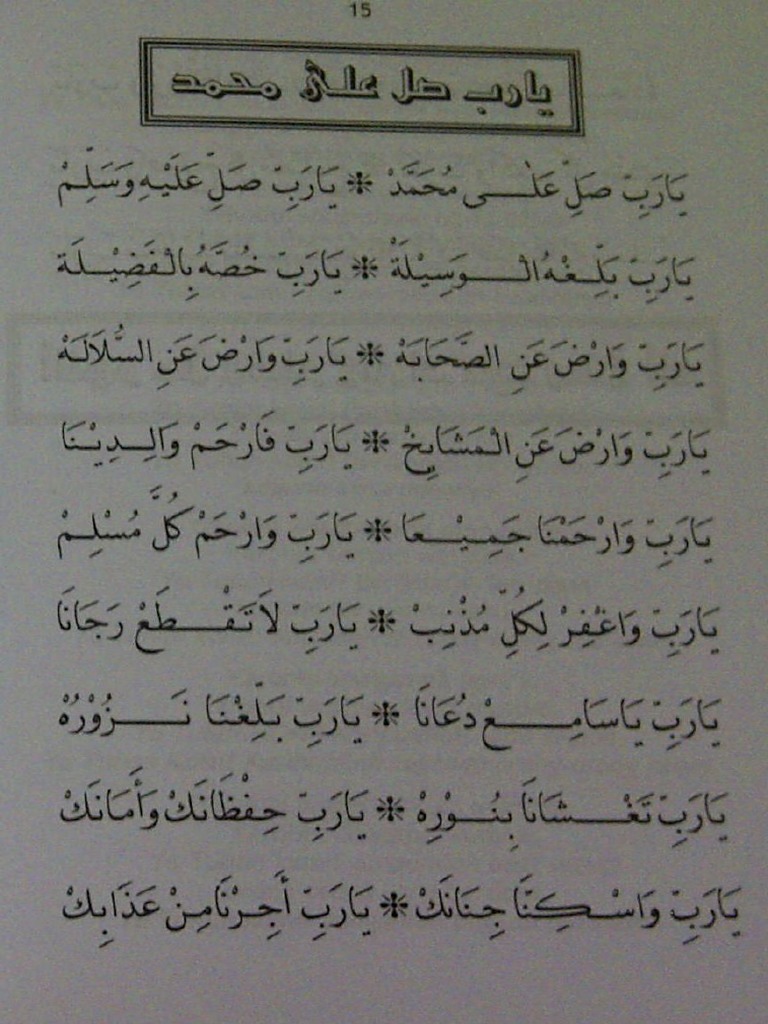 15
يارب صل على محمد
يَارَبِّ صَلِّ عَلَى مُحَمَّدْ ❋ يَارَبِّ صَلِّ عَلَيْهِ وَسَلِّمْ
يَارَبِّ بَلِّغْهُ الْوَسِيْلَةْ ❋ يَارَبِّ خُصَّهُ بِالْفَضِيْلَةْ
يَارَبِّ وَارْضَ عَنِ الصَّحَابَهْ ❋ يَارَبِّ وَارْضَ عَنِ السُّلَالَهْ
يَارَبِّ وَارْضَ عَنِ الْمَشَايِخْ ❋ يَارَبِّ فَارْحَمْ وَالِدِيْنَا
يَارَبِّ وَارْحَمْنَا جَمِيْعَا ❋ يَارَبِّ وَارْحَمْ كُلَّ مُسْلِمْ
يَارَبِّ وَاغْفِرْ لِكُلِّ مُذْنِبْ ❋ يَارَبِّ لَا تَقْطَعْ رَجَانَا
يَارَبِّ يَاسَامِعْ دُعَانَا ❋ يَارَبِّ بَلِّغْنَا نَزُوْرُهْ
يَارَبِّ تَغْشَانَا بِنُوْرِهْ ❋ يَارَبِّ حِفْظَانَكْ وَأَمَانَكْ
يَارَبِّ وَاسْكِنَّا جِنَانَكْ ❋ يَارَبِّ أَجِرْنَا مِنْ عَذَابِكْ